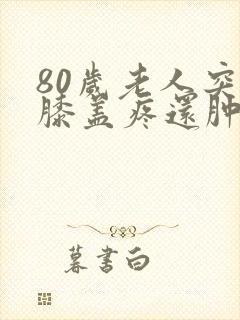 80歲老人突
膝蓋疼還肿
暮書白